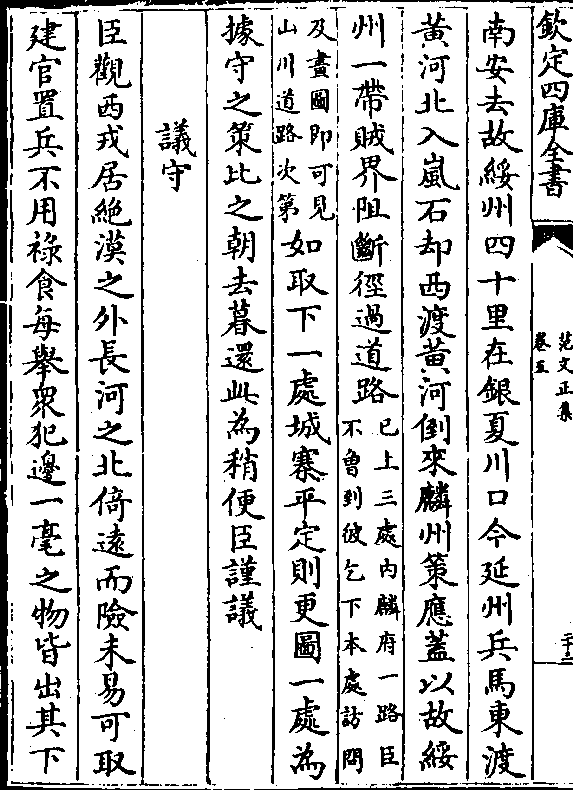 欽定四庫全書
范文正集
卷五
二十三
南安去故綏州四十里在銀夏川口今延州兵馬東渡
黃河北入嵐石却西渡黃河倒來麟州策應蓋以故綏
州一帶賊界阻斷徑過道路已上三處内麟府一路臣不曾到彼乞下本處訪問
及畫圖即可見山川道路次第如取下一處城寨平定則更圖一處為
據守之策比之朝去暮還此為稍便臣謹議
議守
臣觀西戎居絶漠之外長河之北倚遠而險未易可取
建官置兵不用祿食每舉衆犯邊一毫之物皆出其下